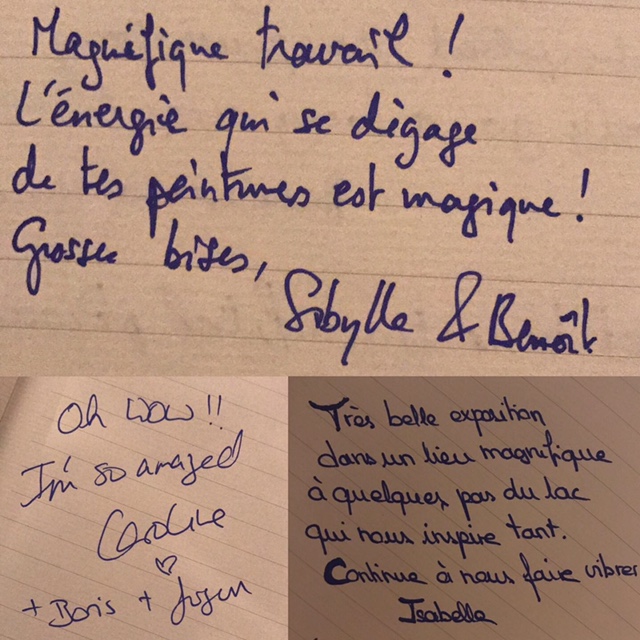 Magnifique travail !
L'énergie qui se dégage
de tes peintures est magique !
Grosses bises,
Sibylle & Benoît
Oh wow !!
I'm so amazed
Caroline
♡
+ Boris + Jurgen
Très belle exposition
dans un lieu magnifique
à quelques pas du lac
qui nous inspire tant.
Continue à nous faire vibrer
Isabelle